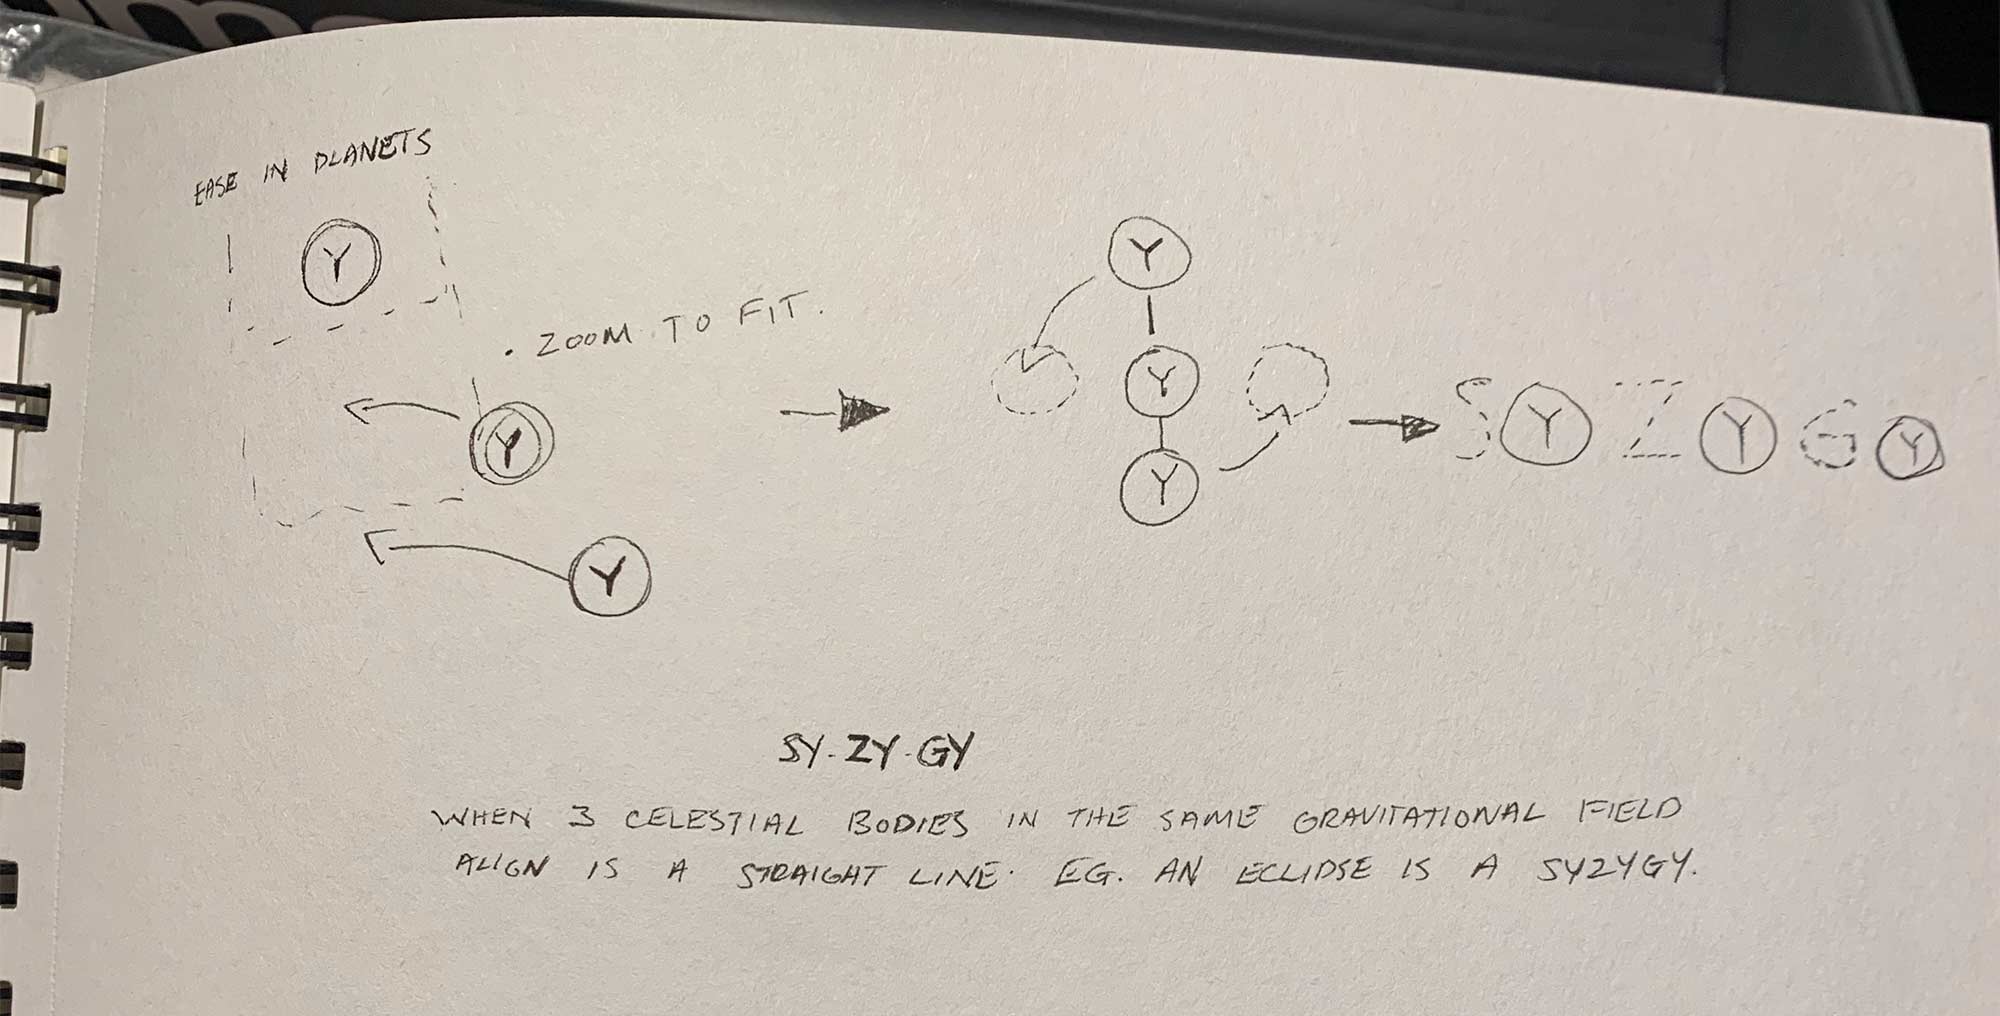 EASE IN PLANETS
Y
· ZOOM TO FIT.
Y
Y
Y
Y
Y
S Y Z Y G Y
SY-ZY-GY
WHEN 3 CELESTIAL BODIES IN THE SAME GRAVITATIONAL FIELD
ALIGN IS A STRAIGHT LINE. EG. AN ECLIPSE IS A SYZYGY.